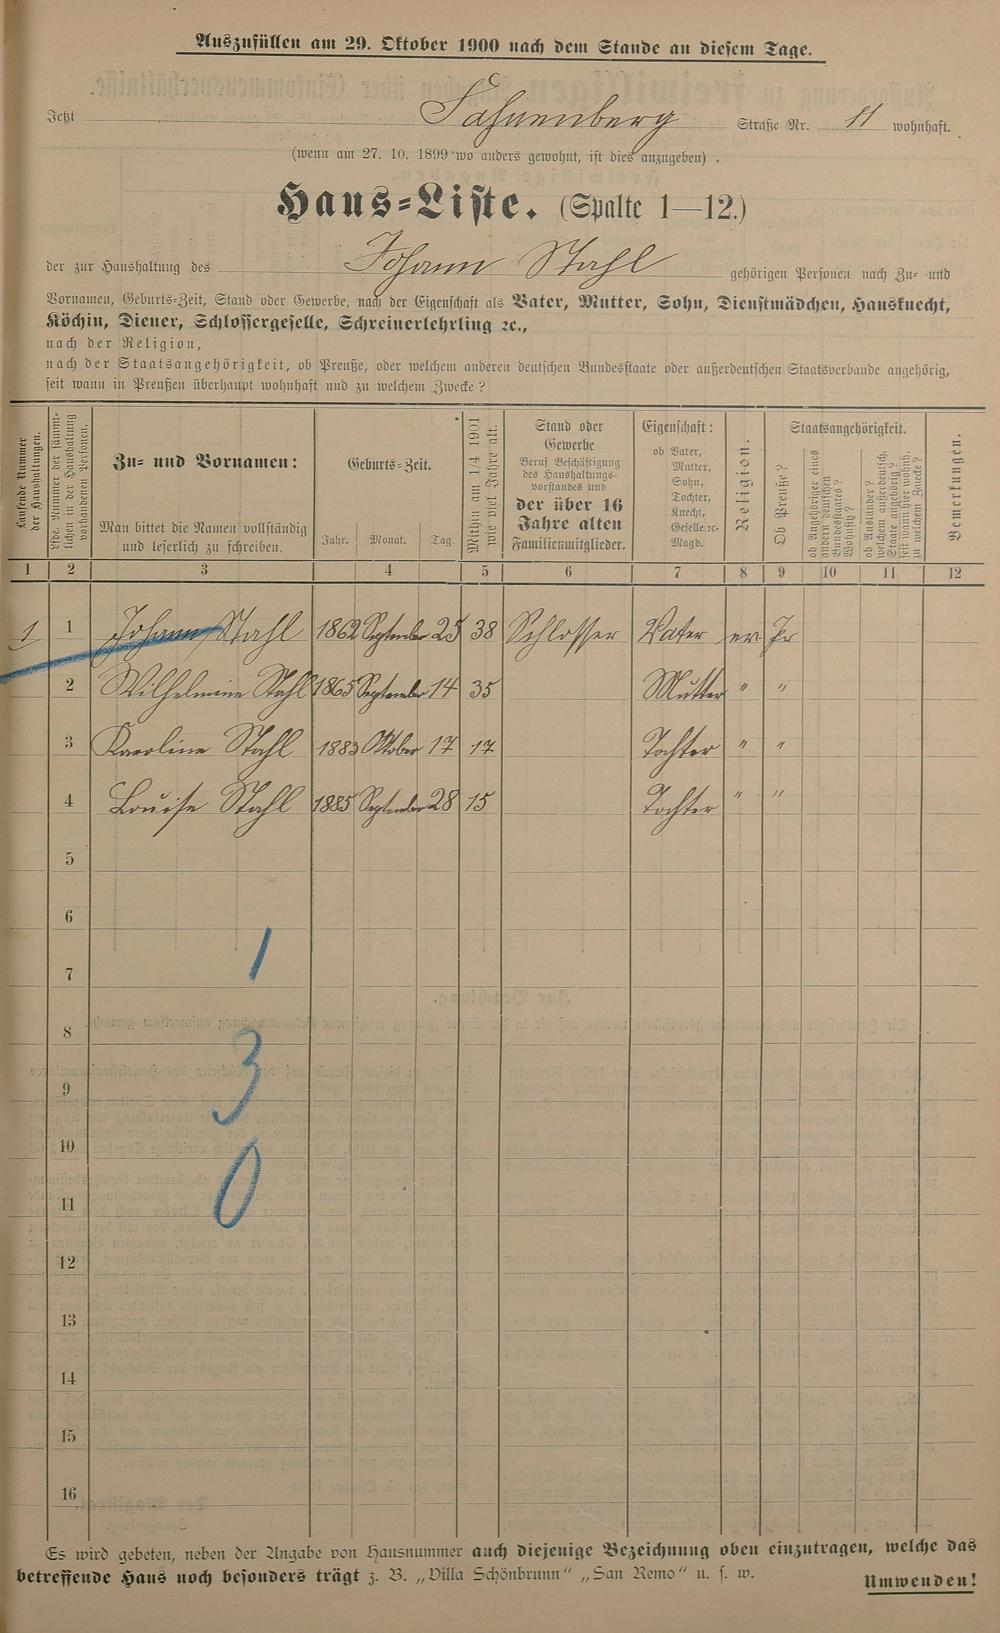 Auszufüllen am 29. Oktober 1900 nach dem Stande an diesem Tage.
Jetzt Fahnenberg Straße Nr. 11 wohnhaft.
(wenn am 27. 10. 1899 wo anders gewohnt, ist dies anzugeben) .
Haus-Liste. (Spalte 1—12.)
der zur Haushaltung des Johann Stahl gehörigen Personen nach Zu- und
Vornamen, Geburts-Zeit, Stand oder Gewerbe, nach der Eigenschaft als Vater, Mutter, Sohn, Dienstmädchen, Hausknecht,
Köchin, Diener, Schlossergeselle, Schreinerlehrling ꝛc.,
nach der Religion,
nach der Staatsangehörigkeit, ob Preuße, oder welchem anderen deutschen Bundesstaate oder außerdeutschen Staatsverbande angehörig,
seit wann in Preußen überhaupt wohnhaft und zu welchem Zwecke ?
Laufende Nummer der Haushaltungen.
Lfde. Nummer der sämmt-
lichen in der Haushaltung
vorhandenen Personen.
Zu- und Vornamen:
Man bittet die Namen vollständig
und leserlich zu schreiben.
Geburts-Zeit.
Jahr. Monat. Tag.
Mithin am 1/4 1901
wie viel Jahre alt.
Stand oder
Gewerbe
Beruf Beschäftigung
des Haushaltungs-
vorstandes und
der über 16
Jahre alten
Familienmitglieder.
Eigenschaft:
ob Vater,
Mutter,
Sohn,
Tochter,
Knecht,
Geselle ꝛc.
Magd.
Religion.
Staatsangehörigkeit.
Ob Preuße ?
ob Angehöriger eines
andern deutschen
Bundesstaates ?
Wohnsitz ?
ob Ausländer ?
welchem außerdeutsch.
Staate angehörig ?
seit wann hier wohnh.
zu welchem Zwecke ?
Bemerkungen.
1 2 3 4 5 6 7 8 9 10 11 12
1 1 Johann Stahl 1862 September 25 38 Schlosser Vater ev. Pr
2 Wilhelmine Stahl 1865 September 14 35 Mutter " "
3 Karoline Stahl 1883 Oktober 17 17 Tochter " "
4 Louise Stahl 1885 September 28 15 Tochter " "
5
6
1
7
8
3
9
10
0
11
12
13
14
15
16
Es wird gebeten, neben der Angabe von Hausnummer auch diejenige Bezeichnung oben einzutragen, welche das
betreffende Haus noch besonders trägt z. B. „Villa Schönbrunn“ „San Remo“ u. s. w.
Umwenden!